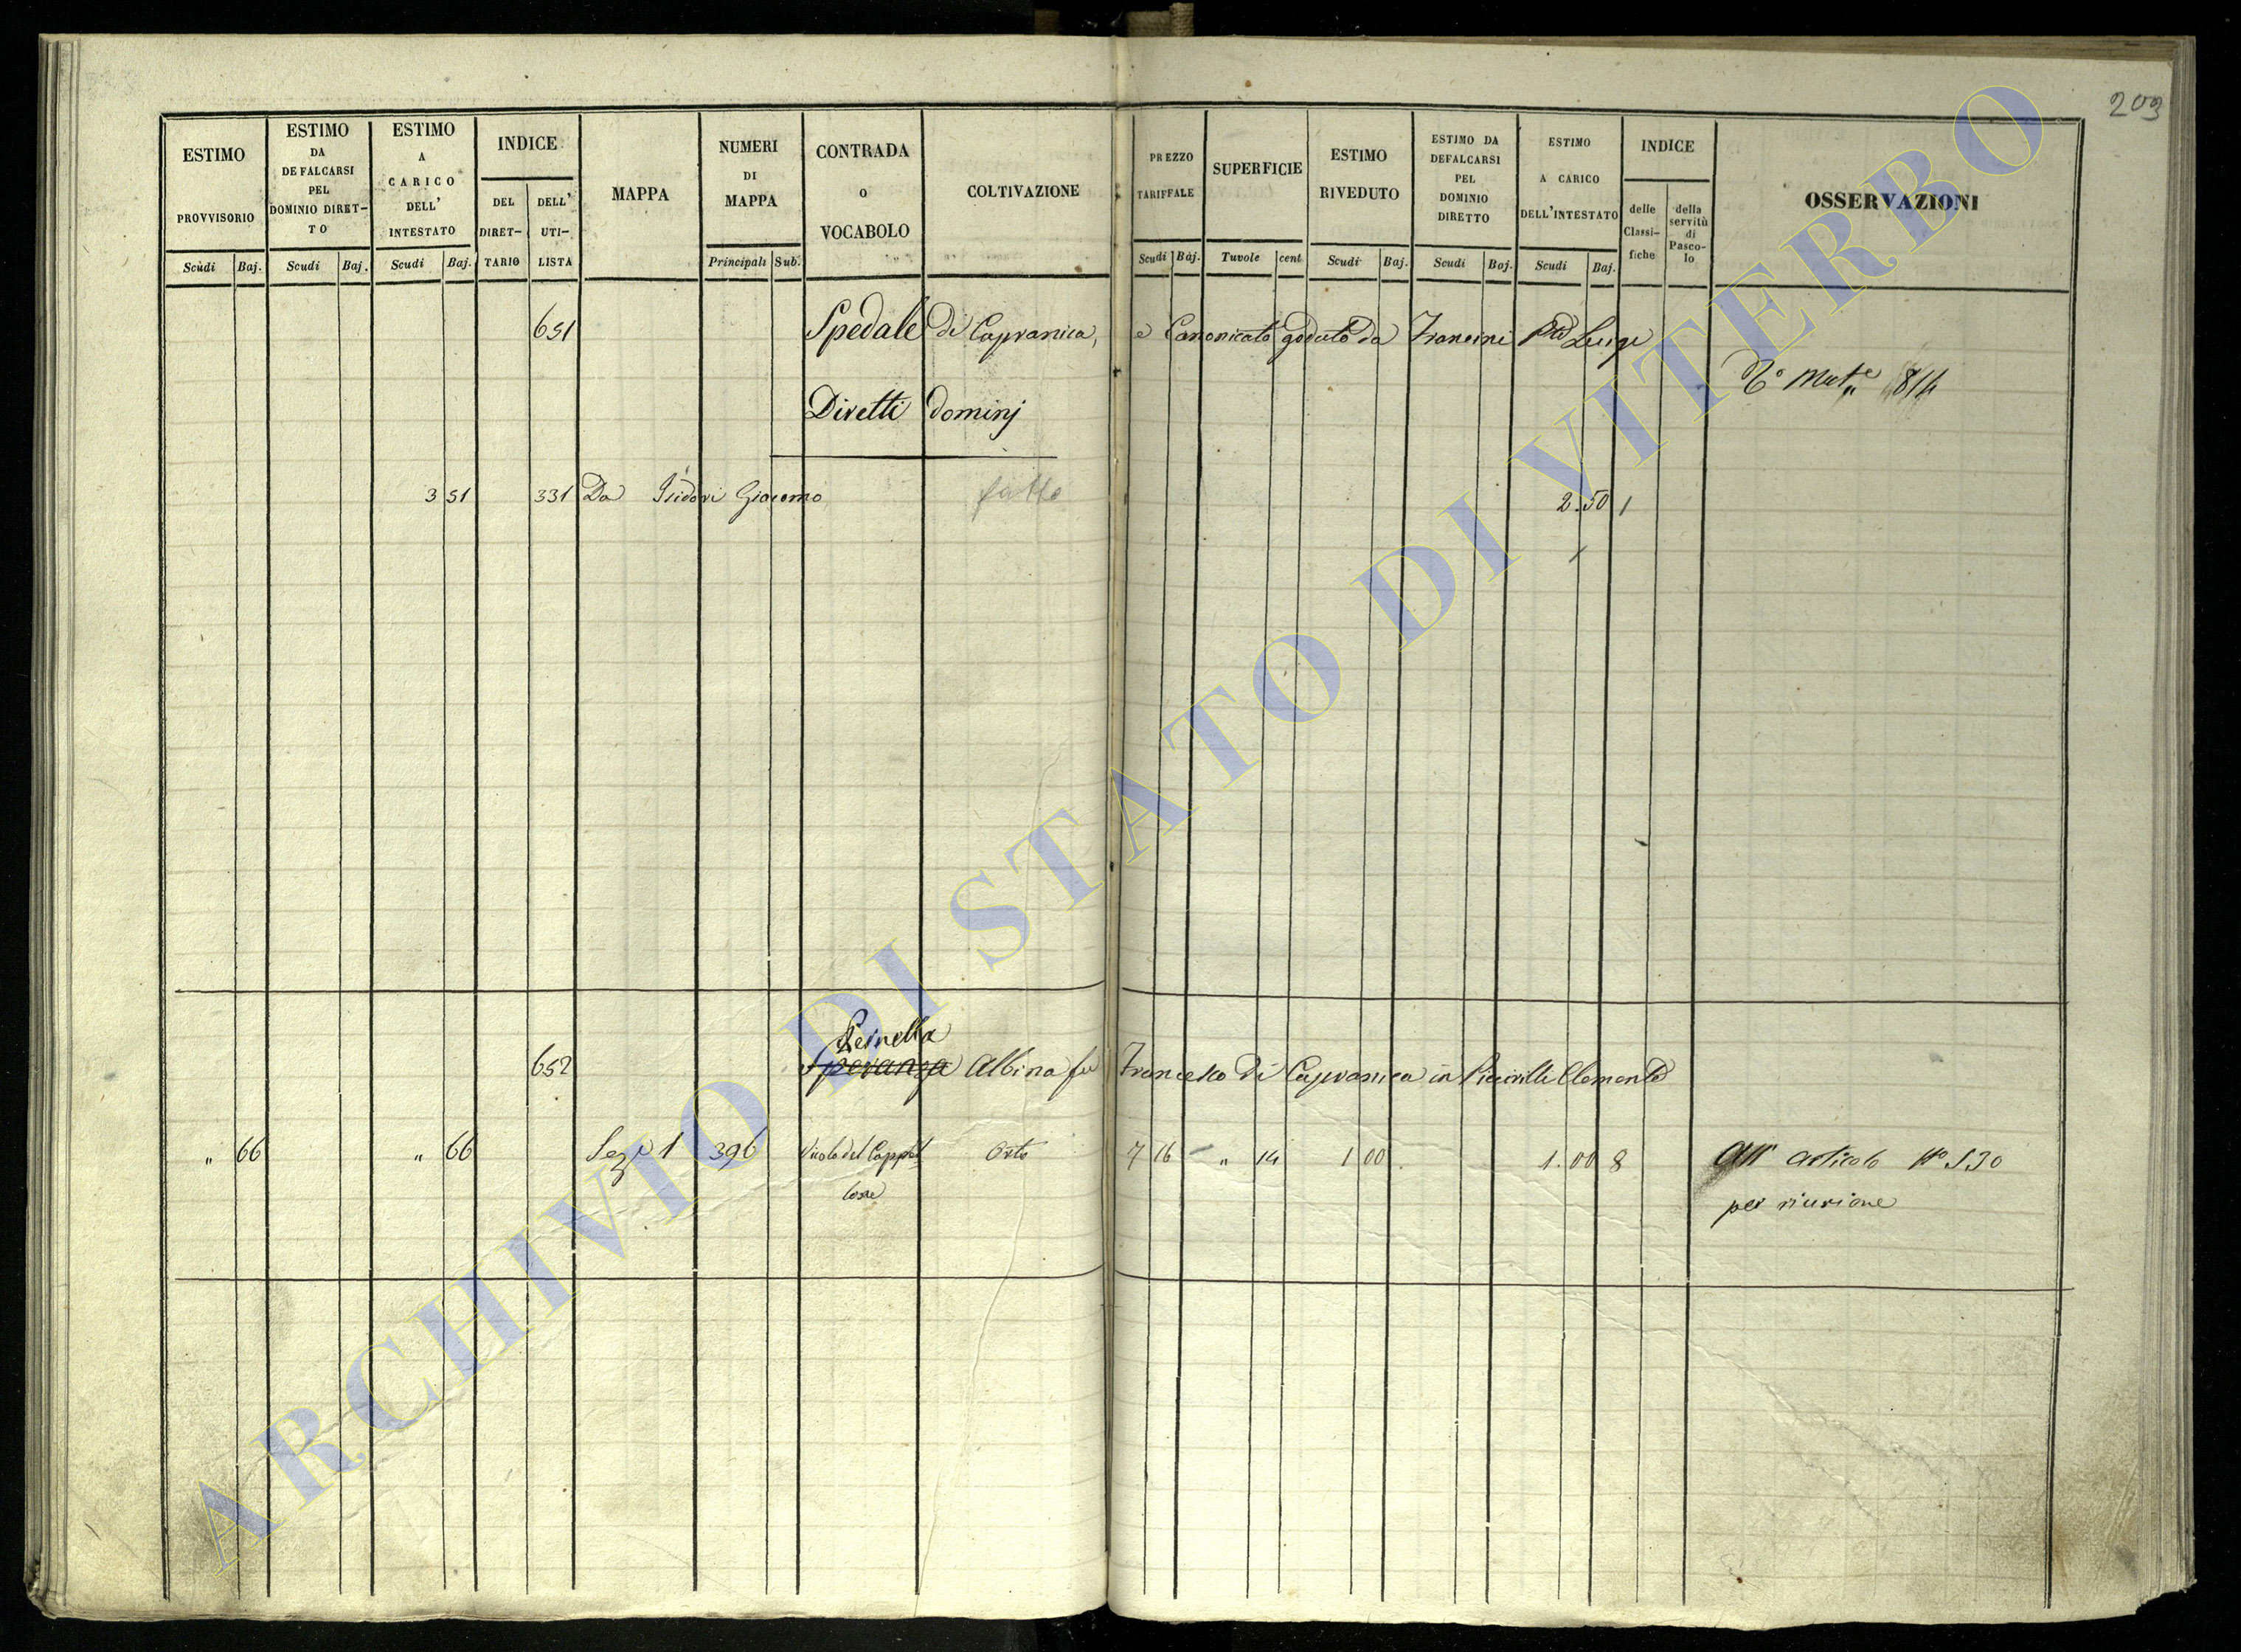 203
ESTIMO PROVVISORIO
ESTIMO DA DEFALCARSI PEL DOMINIO DIRET-TO
ESTIMO A CARICO DELL' INTESTATO
INDICE
DEL DIRET-TARIO
DELL' UTI-LISTA
MAPPA
NUMERI DI MAPPA
CONTRADA o VOCABOLO
COLTIVAZIONE
PREZZO TARIFFALE
SUPERFICIE
ESTIMO RIVEDUTO
ESTIMO DA DEFALCARSI PEL DOMINIO DIRETTO
ESTIMO A CARICO DELL'INTESTATO
INDICE
delle Classi-fiche
della servitù di Pasco-lo
OSSERVAZIONI
Scudi Baj. Scudi Baj. Scudi Baj. Principali Sub. Scudi Baj. Tavole cent Scudi Baj. Scudi Baj. Scudi Baj.
651 Spedale di Capranica, e Canonicato goduto da Francini Luigi
N° Mat.e 814
Diretti dominj
3 51 331 Da Isidori Giacomo fatto 2.50 1
Peinella
652 Speranza Albina fu Francesco di Capranica in Clemente
" 66 " 66 Sez.e 1 396 Vicolo del Orto 7 16 " 14 1 00 1.00 8 All' articolo N° 530
per riunione
ARCHIVIO DI STATO DI VITERBO